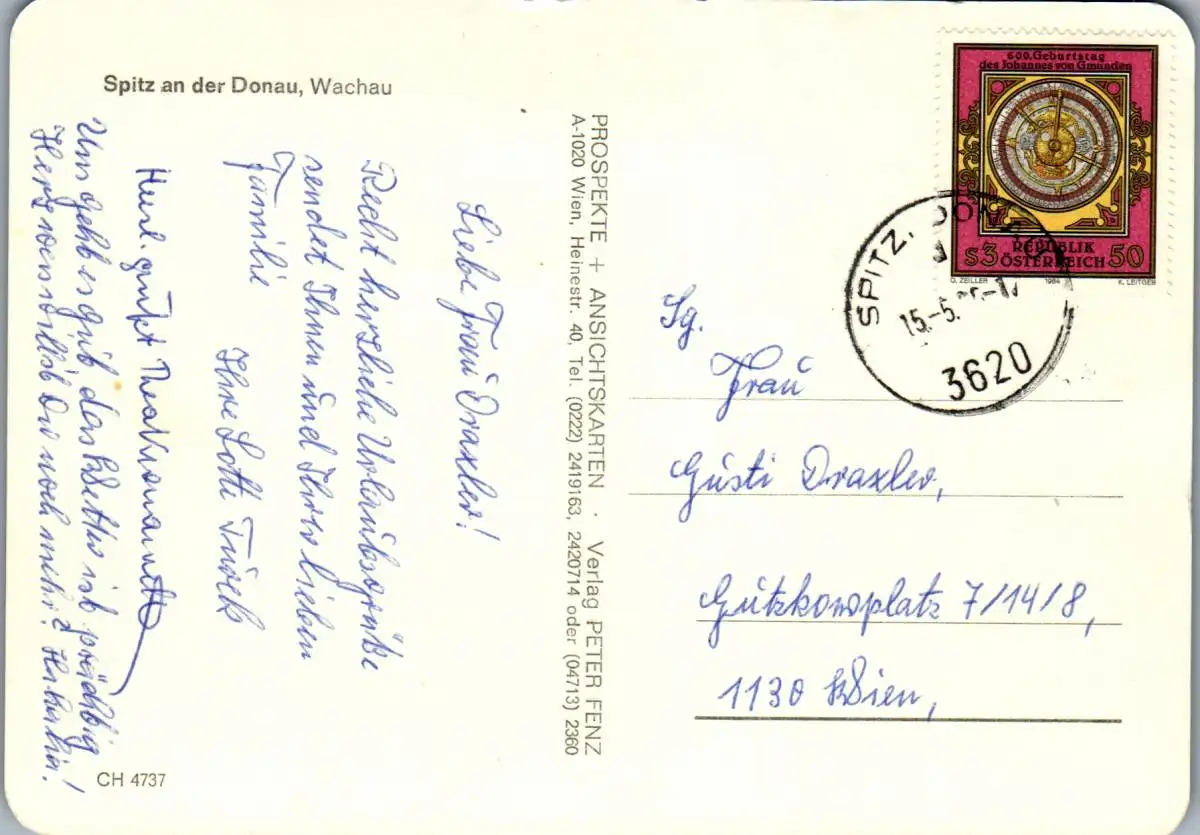 Spitz an der Donau, Wachau
Liebe Frau Draxler!
Recht herzliche Urlaubsgrüße
sendet Ihnen und Ihrer lieben
Familie
Ihre Lotte Türck
Herzl. grüßt
Uns geht es gut das Wetter ist prächtig!
Herz was willst Du noch mehr?
CH 4737
PROSPEKTE + ANSICHTSKARTEN · Verlag PETER FENZ
A-1020 Wien, Heinestr. 40, Tel. (0222) 2419163, 2420714 oder (04713) 2360
600. Geburtstag
des Johannes von Gmunden
S3 REPUBLIK ÖSTERREICH 50
O. ZEILLER 1984 K. LEITGEB
SPITZ, DONAU
15.-5.
3620
Sg.
Frau
Gusti Draxler,
Gutzkowplatz 7/14/8,
1130 Wien,